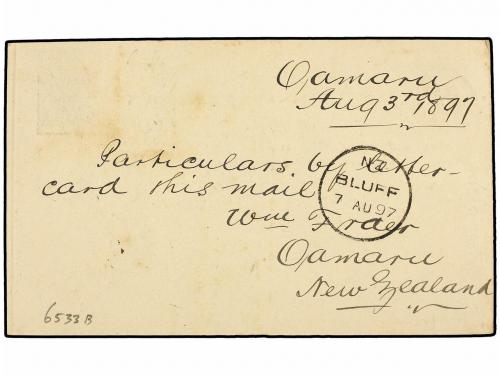 Oamaru
Aug 3rd 1897
Particulars by letter-
card this mail
Wm Fraer
Oamaru
New Zealand
N.Z
BLUFF
7 AU 97
6533 B